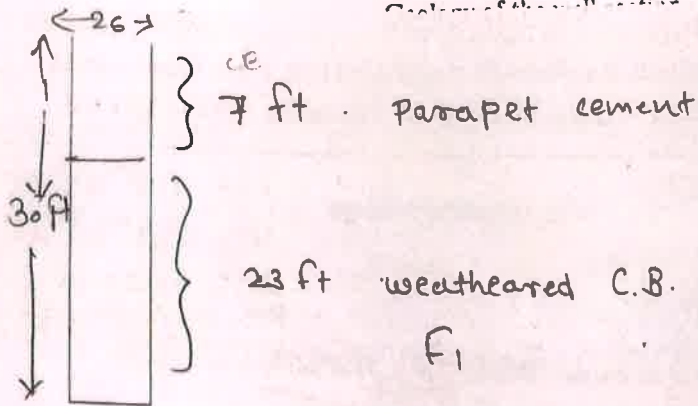 26
C.E.
7 ft . Parapet cement
30 ft
23 ft weatheared C.B.
F1